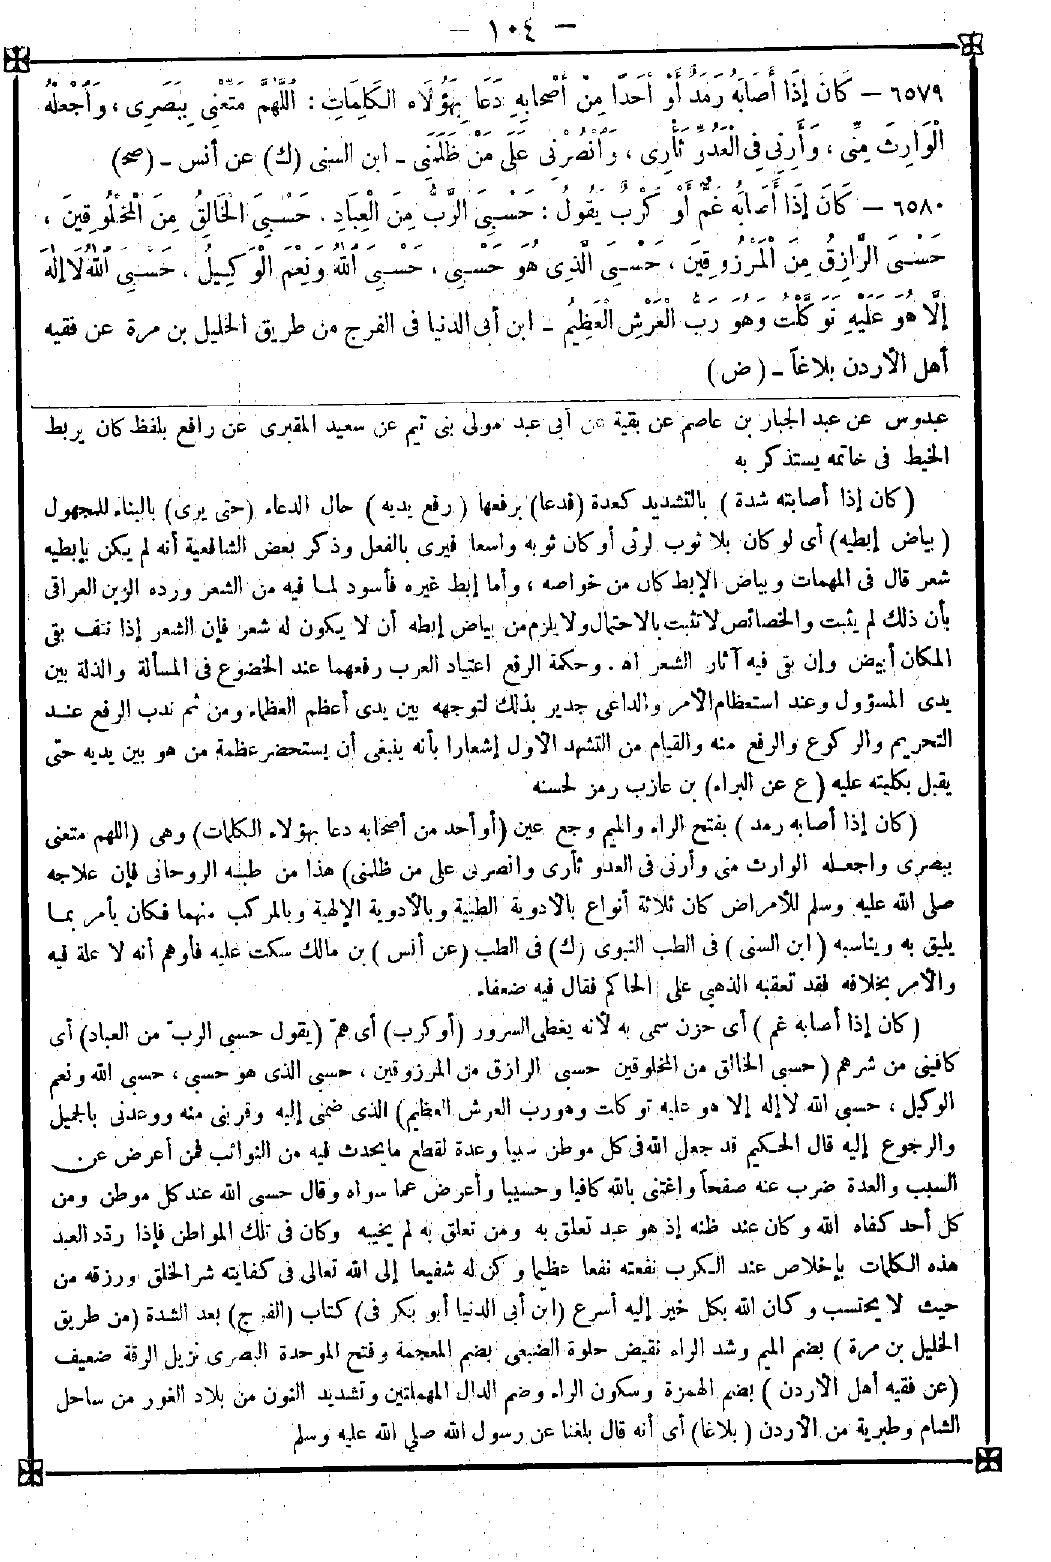 — ١٠٤ —
٦٥٧٩ — كَانَ إِذَا أَصَابَهُ رَمَدٌ أَوْ أَحَدًا مِنْ أَصْحَابِهِ دَعَا بِهَؤُلَاءِ الْكَلِمَاتِ : اَللَّهُمَّ مَتِّعْنِي بِبَصَرِى ، وَاجْعَلْهُ
الْوَارِثَ مِنِّى ، وَأَرِنِي فِى الْعَدُوِّ ثَأْرِى ، وَانْصُرْنِي عَلَى مَنْ ظَلَمَنِي - ابن السنى (ك) عن أنس - (صح)
٦٥٨٠ — كَانَ إِذَا أَصَابَهُ غَمٌّ أَوْ كَرْبٌ يَقُولُ : حَسْبِيَ الرَّبُّ مِنَ الْعِبَادِ ، حَسْبِيَ الْخَالِقُ مِنَ الْمَخْلُوقِينَ ،
حَسْبِيَ الرَّازِقُ مِنَ الْمَرْزُوقِينَ ، حَسْبِيَ الَّذِى هُوَ حَسْبِى ، حَسْبِيَ اللهُ وَنِعْمَ الْوَكِيلُ ، حَسْبِيَ اللهُ لَا إِلَهَ
إِلَّا هُوَ عَلَيْهِ تَوَكَّلْتُ وَهُوَ رَبُّ الْعَرْشِ الْعَظِيمِ - ابن أبى الدنيا فى الفرج من طريق الخليل بن مرة عن فقيه
أهل الأردن بلاغاً - (ض)
عبدوس عن عبد الجبار بن عاصم عن بقية عن أبى عبد مولى بنى تيم عن سعيد المقبرى عن رافع بلفظ كان يربط
الخيط فى خاتمه يستذكر به
(كان إذا أصابته شدة) بالتشديد كعدة (فدعا) برفعها (رفع يديه) حال الدعاء (حتى يرى) بالبناء للمجهول
(بياض إبطيه) أى لو كان بلا ثوب لرئى أو كان ثوبه واسعا فيرى بالفعل وذكر بعض الشافعية أنه لم يكن بإبطيه
شعر قال فى المهمات وبياض الإبط كان من خواصه ، وأما إبط غيره فأسود لما فيه من الشعر ورده الزين العراقى
بأن ذلك لم يثبت والخصائص لا تثبت بالاحتمال ولا يلزم من بياض إبطه أن لا يكون له شعر فإن الشعر إذا نتف بقى
المكان أبيض وإن بقى فيه آثار الشعر اه . وحكمة الرفع اعتياد العرب رفعهما عند الخضوع فى المسألة والذلة بين
يدى المسؤول وعند استعظام الأمر والداعى جدير بذلك لتوجهه بين يدى أعظم العظماء ومن ثم ندب الرفع عند
التحريم والركوع والرفع منه والقيام من التشهد الأول إشعارا بأنه ينبغى أن يستحضر عظمة من هو بين يديه حتى
يقبل بكليته عليه (ع عن البراء) بن عازب رمز لحسنه
(كان إذا أصابه رمد) بفتح الراء والميم وجع عين (أو أحد من أصحابه دعا بهؤلاء الكلمات) وهى (اللهم متعنى
ببصرى واجعله الوارث منى وأرنى فى العدو ثأرى وانصرنى على من ظلمنى) هذا من طبه الروحانى فإن علاجه
صلى الله عليه وسلم للأمراض كان ثلاثة أنواع بالأدوية الطبية وبالأدوية الإلهية وبالمركب منهما فكان يأمر بما
يليق به ويناسبه (ابن السنى) فى الطب النبوى (ك) فى الطب (عن أنس) بن مالك سكت عليه فأوهم أنه لا علة فيه
والأمر بخلافه فقد تعقبه الذهبي على الحاكم فقال فيه ضعفاء.
(كان إذا أصابه غم) أى حزن سمى به لأنه يغطى السرور (أو كرب) أى همّ (يقول حسبي الربّ من العباد) أى
كافينى من شرهم (حسبى الخالق من المخلوقين حسبى الرازق من المرزوقين ، حسبى الذى هو حسبى ، حسبى الله ونعم
الوكيل ، حسبى الله لا إله إلا هو عليه توكلت وهو رب العرش العظيم) الذى ضمنى إليه وقربنى منه ووعدنى بالجميل
والرجوع إليه قال الحكيم قد جعل الله فى كل موطن سببا وعدة لقطع ما يحدث فيه من النوائب فمن أعرض عن
السبب والعدة ضرب عنه صفحاً واغتنى بالله كافيا وحسيبا وأعرض عما سواه وقال حسبى الله عند كل موطن ومن
كل أحد كفاه الله وكان عند ظنه إذ هو عبد تعلق به ومن تعلق به لم يخيبه وكان فى تلك المواطن فإذا ردّد العبد
هذه الكلمات بإخلاص عند الكرب نفعته نفعا عظيما وكن له شفيعا إلى الله تعالى فى كفايته شر الخلق ورزقه من
حيث لا يحتسب وكان الله بكل خير إليه أسرع (ابن أبى الدنيا أبو بكر فى) كتاب (الفرج) بعد الشدة (من طريق
الخليل بن مرة) بضم الميم وشد الراء نقيض حلوة الضبعى بضم المعجمة وفتح الموحدة البصرى نزيل الرقة ضعيف
(عن فقيه أهل الأردن) بضم الهمزة وسكون الراء وضم الدال المهملتين وتشديد النون من بلاد الغور من ساحل
الشام وطبرية من الأردن (بلاغا) أى أنه قال بلغنا عن رسول الله صلى الله عليه وسلم